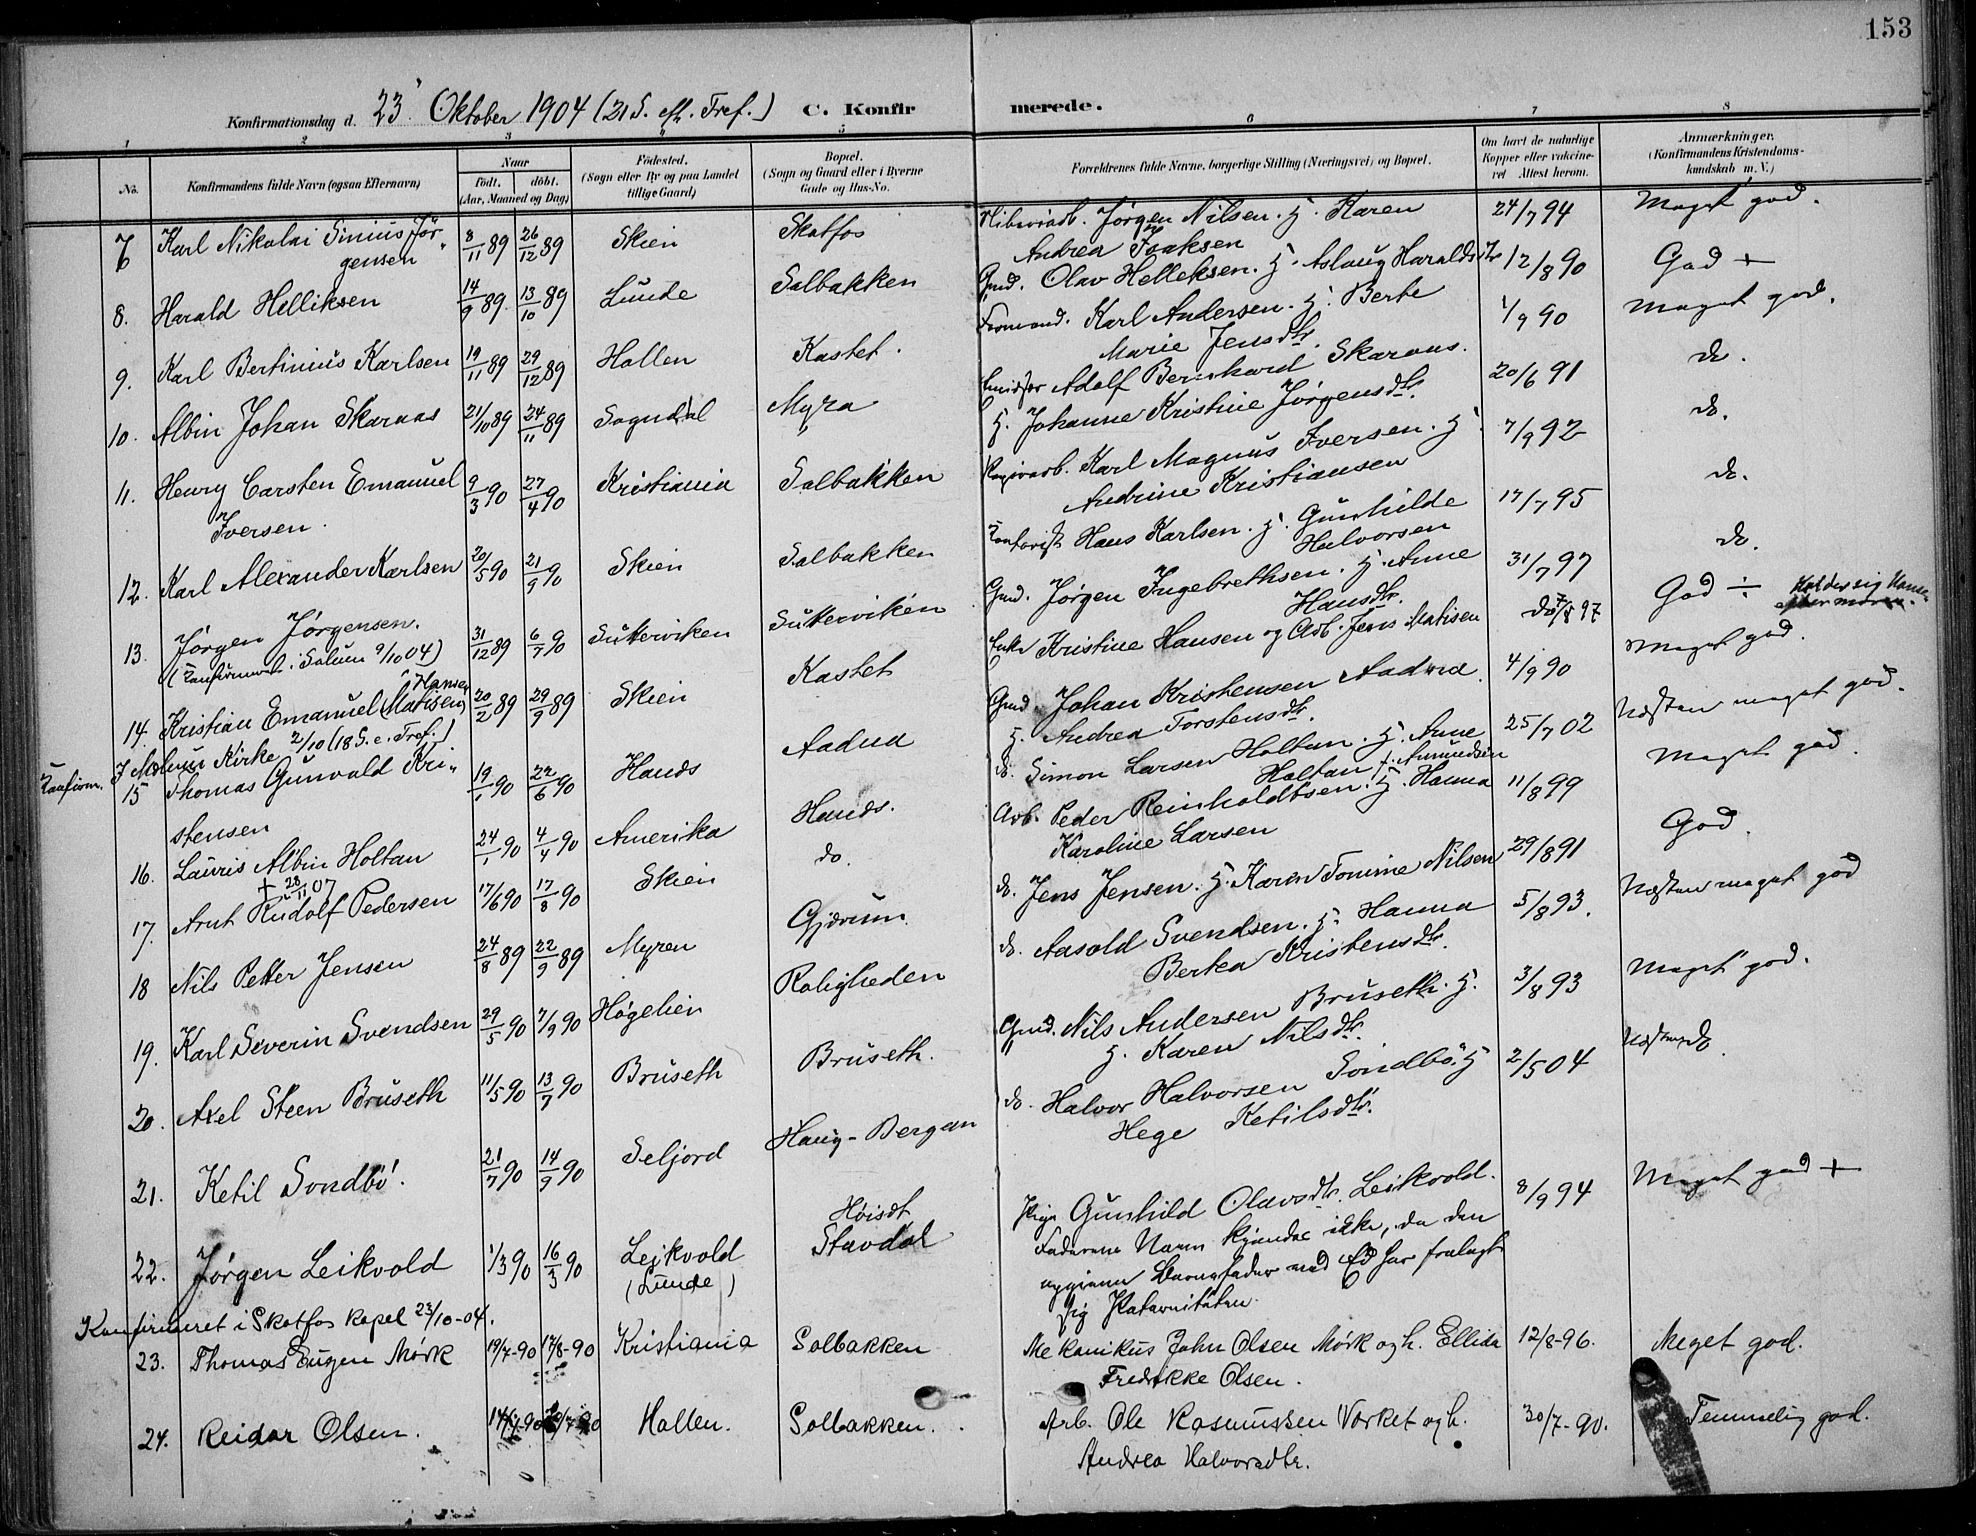 153
Konfirmationsdag d. 23' Oktober 1904 (21 S. eft. Tref.) C. Konfirmerede.
1 2 3 4 5 6 7 8
No. Konfirmandens fulde Navn (ogsaa Efternavn) Naar født. døbt. (Aar, Maaned og Dag) Fødested. (Sogn eller By og paa Landet tillige Gaard) Bopæl. (Sogn og Gaard eller i Byerne Gade og Hus-No. Forældrenes fulde Navne, borgerlige Stilling (Næringsvei) og Bopæl. Om havt de naturlige Kopper eller vaccineret Attest herom. Anmærkninger. (Konfirmandens Kristendomskundskab m. V.)
7 Karl Nikolai Sinius Jör- 8/11 89 26/12 89 Skien Skotfos Jørgen Nilsen. H. Karen 24/7 94 Meget god.
gensen Andrea Isaksen
8. Harald Helliksen 14/9 89 13/10 89 Lunde Solbakken Gmd. Olav Helleksen. H. Aslaug Haraldsdtr 12/8 90 God +
9. Karl Bertinius Karlsen 19/11 89 29/12 89 Hollen Kastet. Formand. Karl Andersen. H. Berte 1/9 90 Meget god.
Marie Jensdtr.
10. Albin Johan Skaraas 21/10 89 24/11 89 Sogndal Myra Adolf Bernhard Skaraas. 20/6 91 do.
H. Johanne Kristine Jørgensdtr.
11. Henry Carsten Emanuel 9/3 90 27/4 90 Kristiania Solbakken Papirarb. Karl Magnus Iversen. H. 7/9 92 do.
Iversen. Andrine Kristiansen
12. Karl Alexander Karlsen 20/5 90 21/9 90 Skien Solbakken Kontorist Hans Karlsen. H. Gunhilde 17/7 95 do.
Halvorsen
13. Jørgen Jørgensen. 31/12 89 6/7 90 Sukerviken Sukerviken Gmd. Jørgen Ingebrethsen. H. Anne 31/7 97 do.
(Konfirmert i Solum 9/10 04) Hansdtr.
14. Kristian Emanuel (Matisen) Hansen 20/2 89 29/9 89 Skien Kastet Enke Kristine Hansen og Arb. Jens Matisen do 7/8 97 God ÷ Kalder sig Hansen efter moren.
Konfirm. I Melum Kirke 2/10 (18 S. e. Tref.)
15 Thomas Gunvald Kri- 19/1 90 22/6 90 Hands Aadna Gmd. Johan Kristensen Aadna 4/9 90 Meget god.
stensen H. Andrea Torstensdtr.
16. Lauris Albin Holtan 24/1 90 4/4 90 Amerika Hands. do. Simon Larsen Holtan. H. Anne 25/7 02 Næsten meget god.
† 28/11 07 Holtan f. Amundsen
17. Arnt Rudolf Pedersen 17/6 90 17/8 90 Skien do. Arb. Peder Reinholdtsen. H. Hanna 11/8 99 Meget god.
Karoline Larsen
18 Nils Petter Jensen 24/8 89 22/9 89 Myren Gjærum. do. Jens Jensen. H. Karen Tomine Nilsen 29/8 91 God.
19. Karl Severin Svendsen 29/5 90 7/9 90 Høgelien Roligheden do. Aasold Svendsen. H. Hanna 5/8 93. Næsten meget god
Bertea Kristensdtr.
20. Axel Steen Bruseth 11/5 90 13/7 90 Bruseth Bruseth. Gmd. Nils Andersen Bruseth. H. 3/8 93 Meget god.
H. Karen Nilsdtr.
21. Ketil Sondbö. 21/7 90 14/9 90 Seljord Haug-Bergan do. Halvor Halvorsen Sondbö. H 2/5 04 Næsten do.
Hege Ketilsdtr.
22. Jørgen Leikvold 1/3 90 16/3 90 Lejkvold (Lunde) Høisdt Stavdal Pige Gunhild Olavsdtr. Leikvold. 8/9 94 Meget god +
Faderens Navn kjendes ikke, da den
opgivne Barnefader med Ed har fralagt
sig Paterniteten.
Konfirmeret i Skotfos kapel 23/10-04.
23. Thomas Eugen Mørk 19/7-90 17/8-90 Kristiania Solbakken Mekanikus John Olsen Mørk og h. Ellida 12/8-96. Meget god.
Fredrikke Olsen.
24. Reidar Olsen. Hollen. Solbakken. Arb. Ole Rasmussen Vorket og h. 30/7-90. Temmelig god.
Andrea Halvorsdtr.